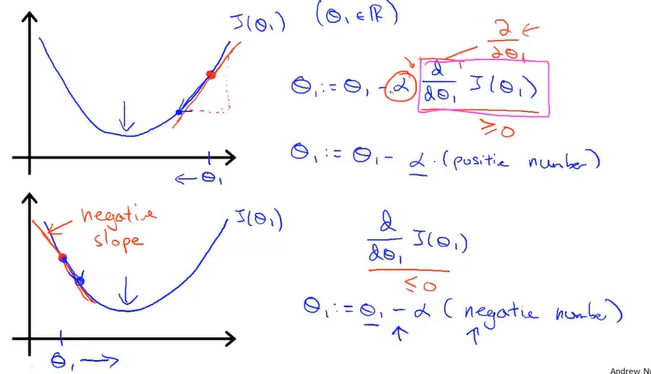 J(θ₁) (θ₁ ∈ ℝ)
∂/∂θ₁
θ₁ := θ₁ - α d/dθ₁ J(θ₁)
≥ 0
θ₁ := θ₁ - α · (positie number)
← θ₁
negative slope
J(θ₁)
d/dθ₁ J(θ₁)
≤ 0
θ₁ := θ₁ - α (negatie number)
θ₁ →
Andrew N